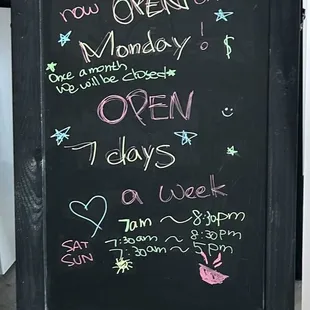 now OPEN on
Monday!
Once a month
We will be closed
OPEN
7 days
a week
7am ~ 8:30pm
SAT 7:30am ~ 8:30pm
SUN 7:30am ~ 5pm